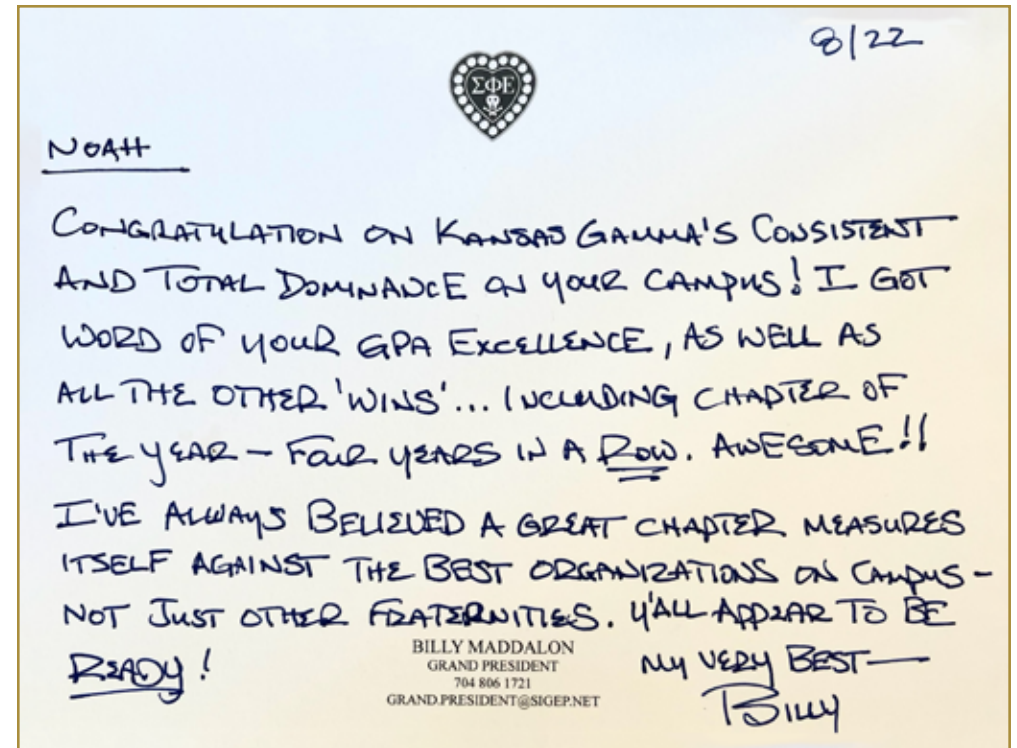 8/22
ΣΦΕ
NOAH
CONGRATULATION ON KANSAS GAMMA'S CONSISTENT
AND TOTAL DOMINANCE ON YOUR CAMPUS! I GOT
WORD OF YOUR GPA EXCELLENCE, AS WELL AS
ALL THE OTHER 'WINS'... INCLUDING CHAPTER OF
THE YEAR - FOUR YEARS IN A ROW. AWESOME!!
I'VE ALWAYS BELIEVED A GREAT CHAPTER MEASURES
ITSELF AGAINST THE BEST ORGANIZATIONS ON CAMPUS -
NOT JUST OTHER FRATERNITIES. Y'ALL APPEAR TO BE
READY!
BILLY MADDALON
GRAND PRESIDENT
704 806 1721
GRAND.PRESIDENT@SIGEP.NET
MY VERY BEST—
BILLY